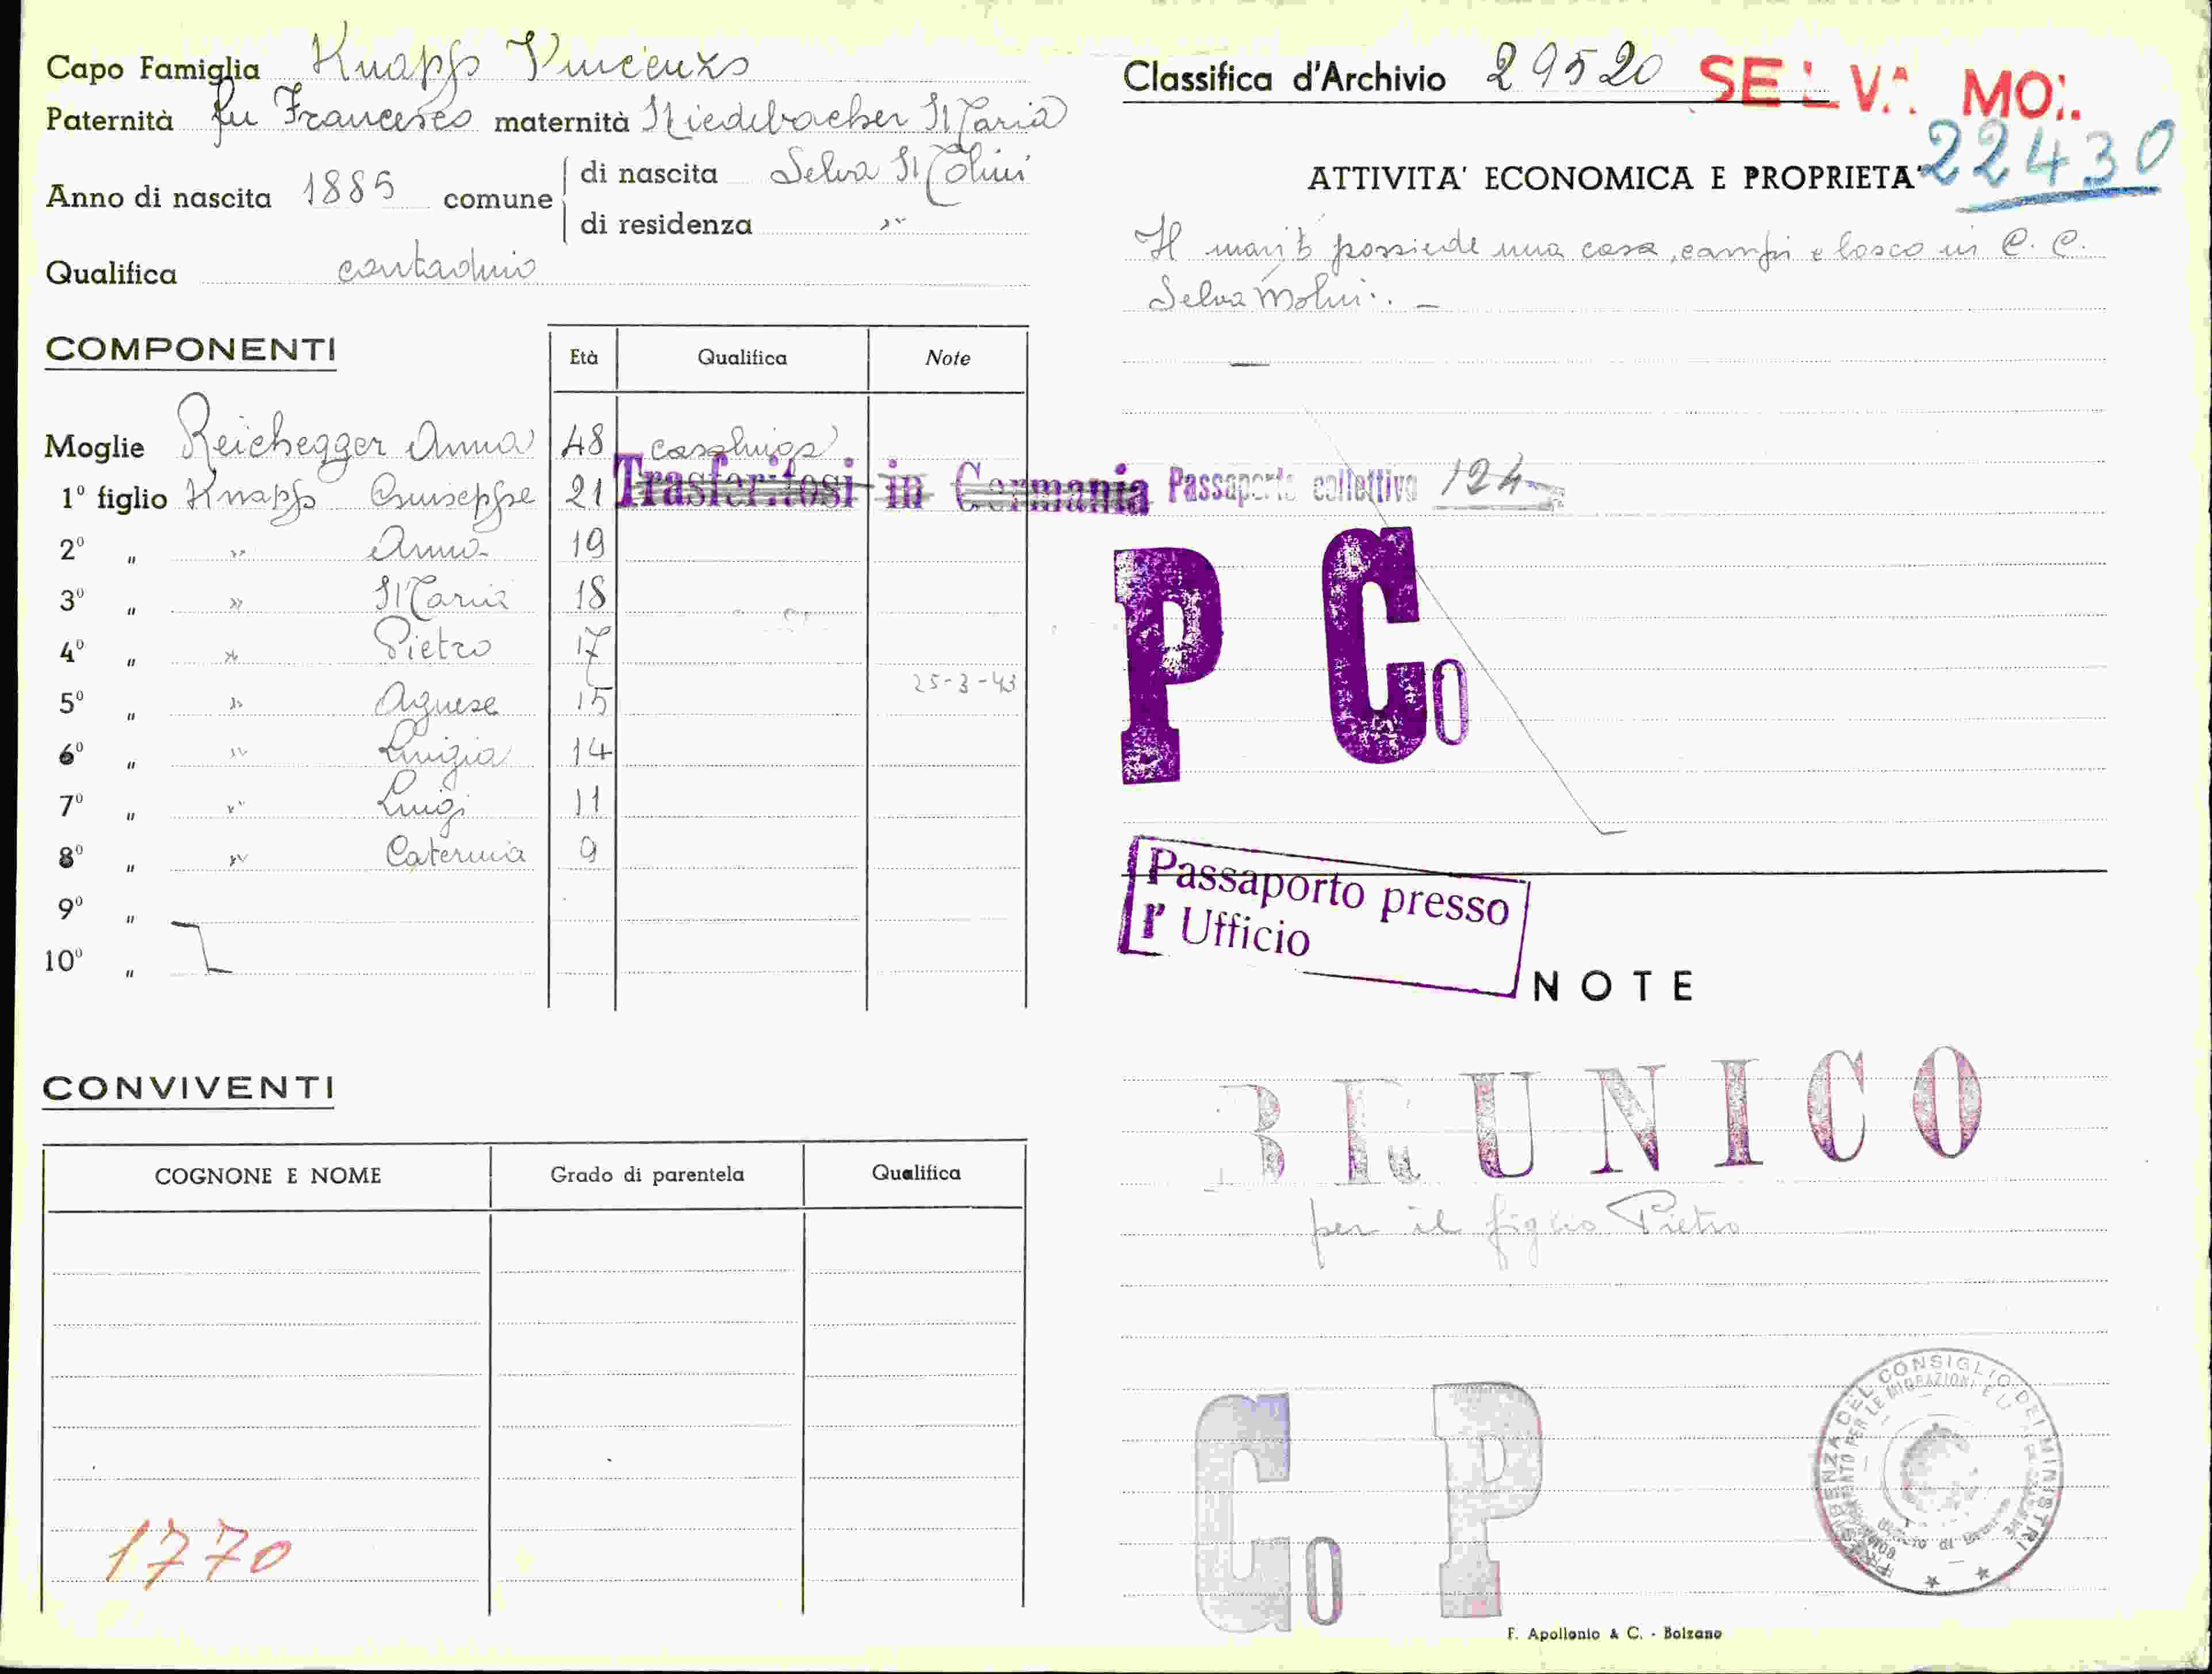 Capo Famiglia Knapp Vincenzo
Paternità fu Francesco maternità Niederbacher Maria
Anno di nascita 1885 comune di nascita Selva Molini
di residenza "
Qualifica contadino
COMPONENTI
Età Qualifica Note
Moglie Reichegger Anna 48 casalinga
1º figlio Knapp Giuseppe 21 Trasferitosi in Germania
2º " " Anna 19
3º " " Maria 18
4º " " Pietro 17
25-3-43
5º " " Agnese 15
6º " " Luigia 14
7º " " Luigi 11
8º " " Caterina 9
9º "
10º "
CONVIVENTI
COGNONE E NOME Grado di parentela Qualifica
1770
Classifica d'Archivio 29520 SELVA MOL.
22430
ATTIVITA' ECONOMICA E PROPRIETA'
Il marito possiede una casa, campi e bosco in C. C.
Selva Molini. —
Passaporto collettivo 124
P Co
Passaporto presso
l' Ufficio
NOTE
BRUNICO
per il figlio Pietro
Co P
PRESIDENZA DEL CONSIGLIO DEI MINISTRI
F. Apollonio & C. - Bolzano